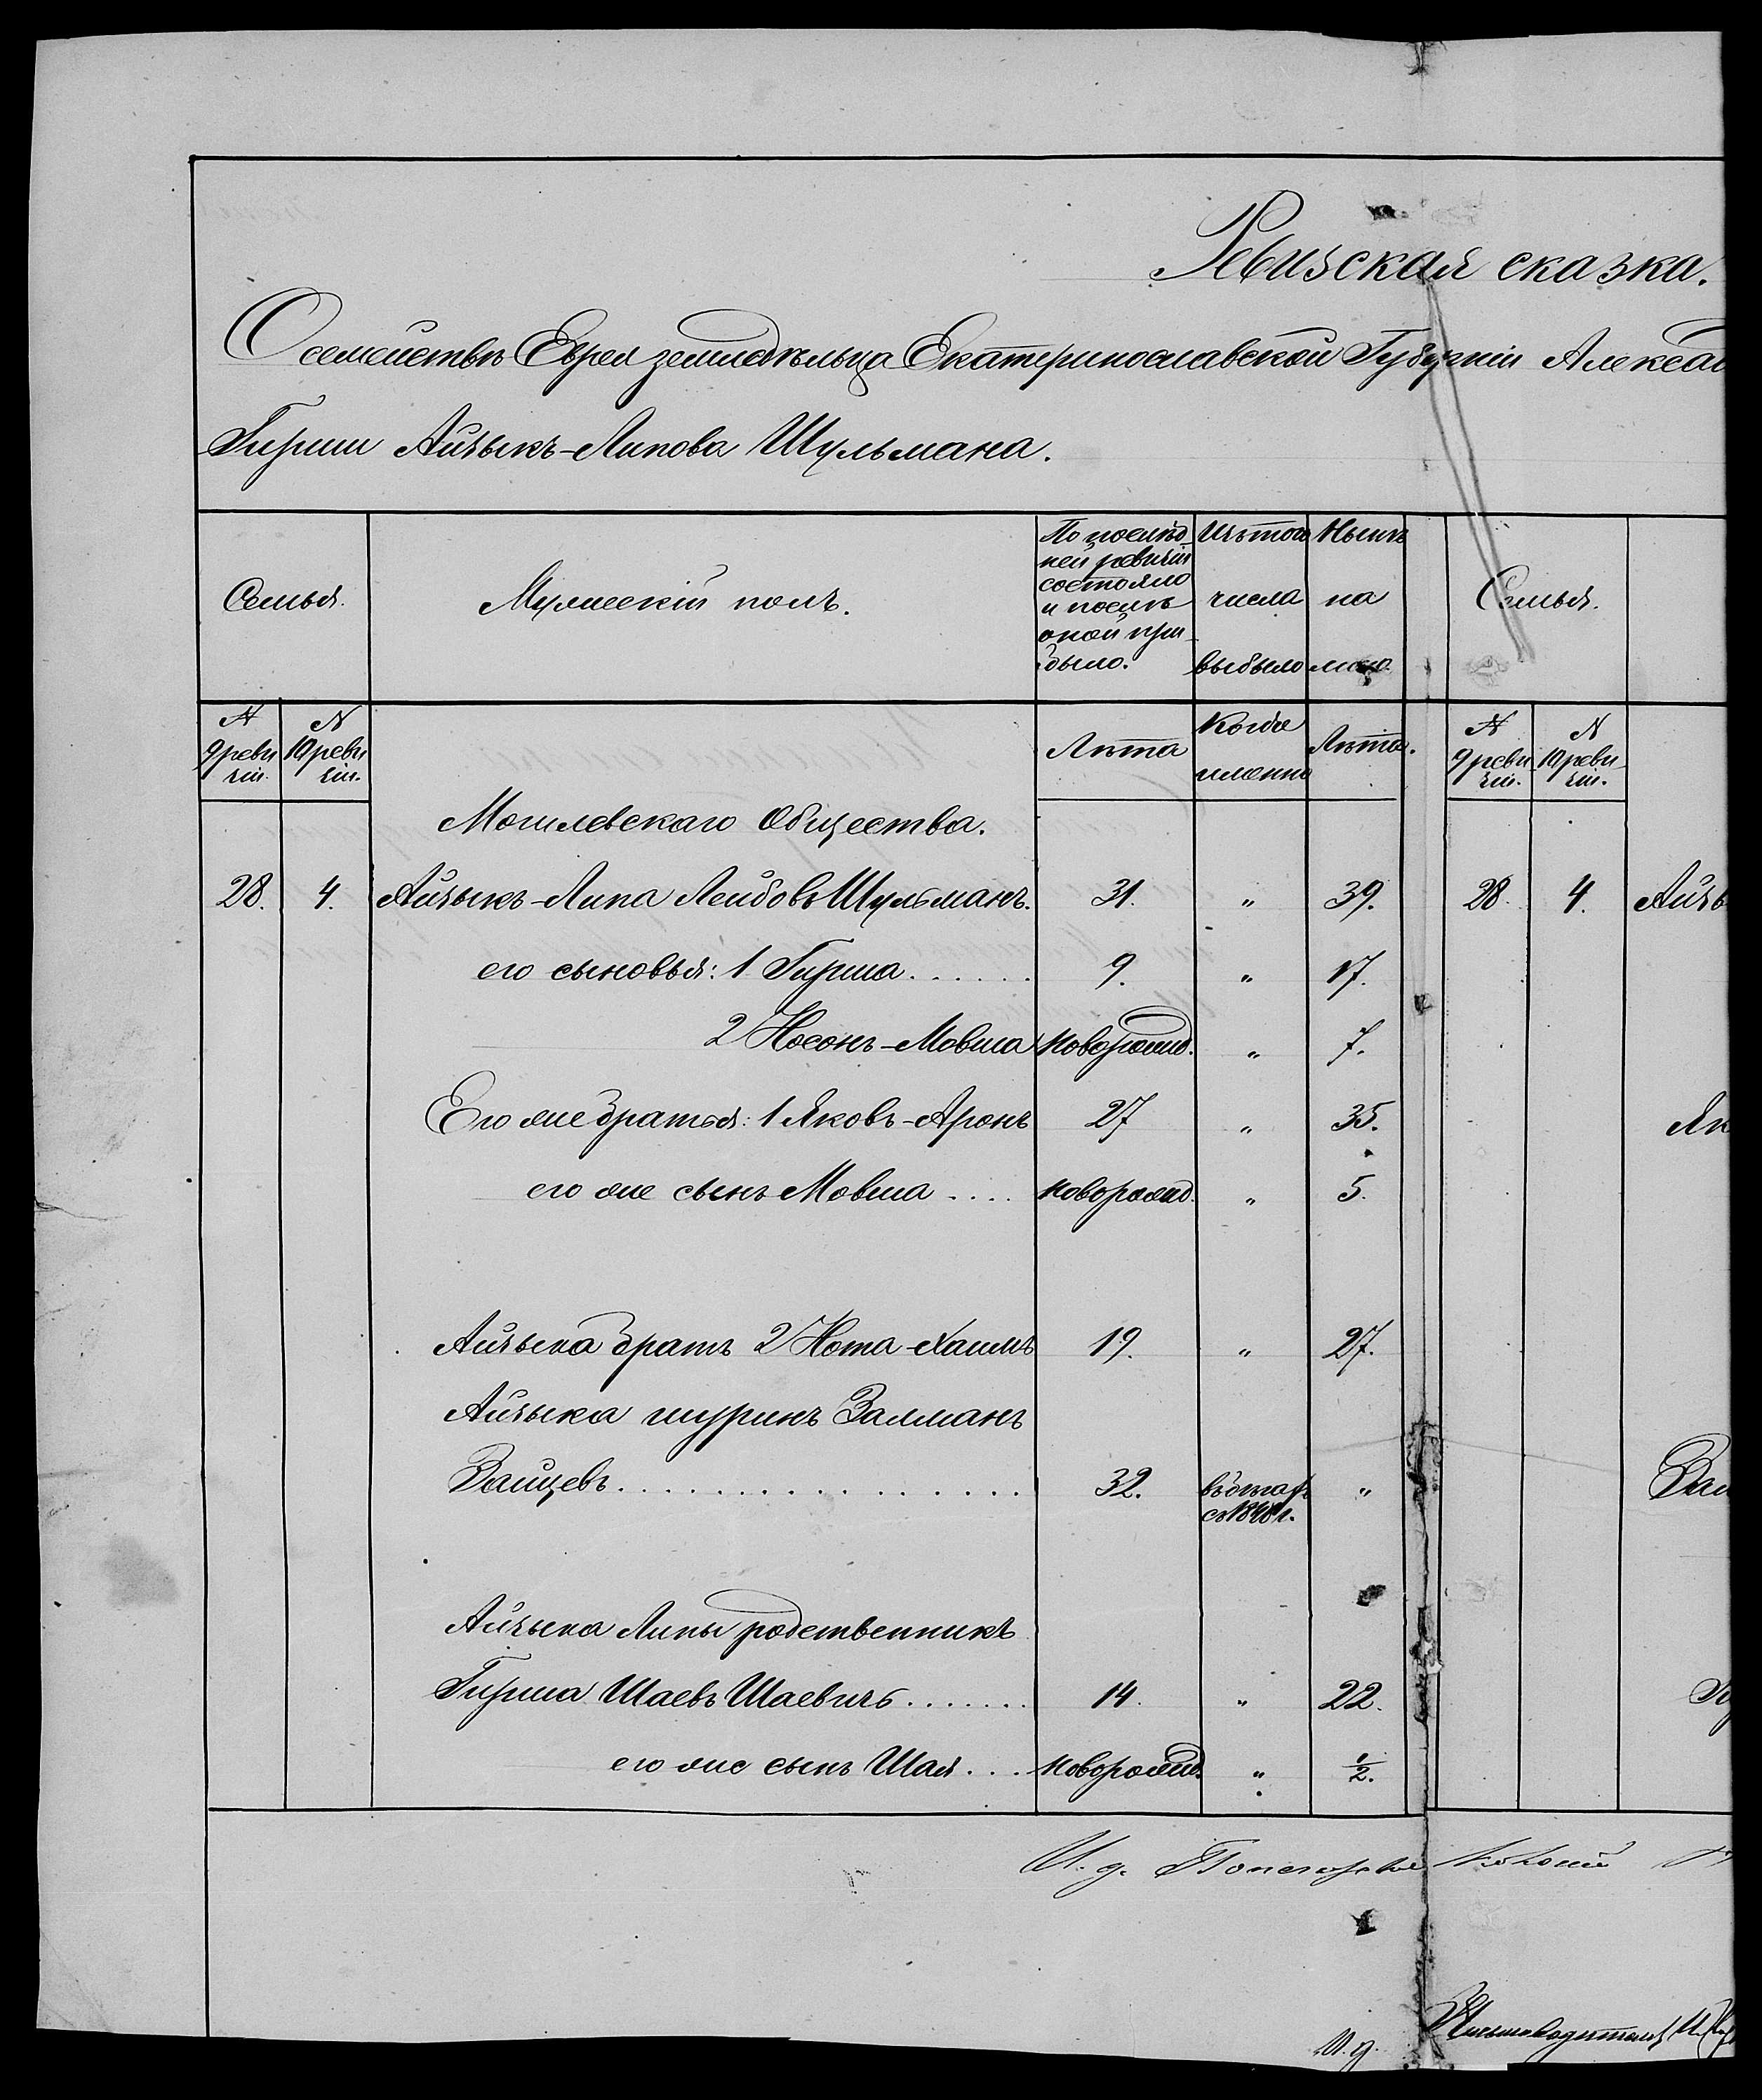 Ревизская сказка.
О семействѣ Еврея земледѣльца Екатеринославской Губерніи Алексан
Гирши Айзыкъ-Липова Шульмана.
Семья.
Мужескій полъ.
По послѣд-
ней ревизіи
состояло
и послѣ
оной при-
было.
Изъ того
числа
выбыло
Нынѣ
на
лицо.
Семья.
№ 9 реви зіи.
№ 10 реви зіи.
Лѣта
Когда
именно
Лѣта.
№ 9 реви- зіи.
№ 10 реви- зіи.
Могилевскаго Общества.
28. 4. Айзыкъ-Липа Лейбовъ Шульманъ. 31. " 39. 28. 4. Айзы
его сыновья: 1 Гирша...... 9. " 17.
2 Носонъ-Мовша новорожд. " 7.
Его же братья: 1 Яковъ-Аронъ 27 " 35. Як
его же сынъ Мовша.... новорожд. " 5.
Айзыка братъ 2 Нота-Хаимъ 19. " 27.
Айзыка шуринъ Залманъ
Зайцевъ................. 32. въ бѣгахъ "
съ 1848 г.
Айзыка Липы родственникъ
Гирша Шаевъ Шаевичъ....... 14. " 22.
его же сынъ Шая... новорожд. " ½.
И. д.
И. д. Письмоводителя